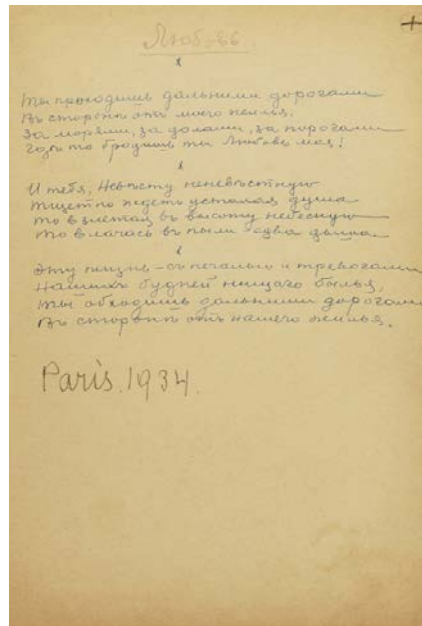 Любовь.
x
Ты проходишь дальними дорогами
Въ сторонѣ отъ моего жилья.
За морями, за долами, за порогами
Гдѣ то бродишь ты Любовь моя!
x
И тебя, Невѣсту неневѣстную
Тщетно ждетъ усталая душа
То взлетая въ высоту небесную
То влачась въ пыли едва дыша.
x
Эту жизнь – съ печалью и тревогами
Нашихъ будней нищаго былья,
Ты обходишь дальними дорогами
Въ сторонѣ отъ нашего жилья.
Paris. 1934.